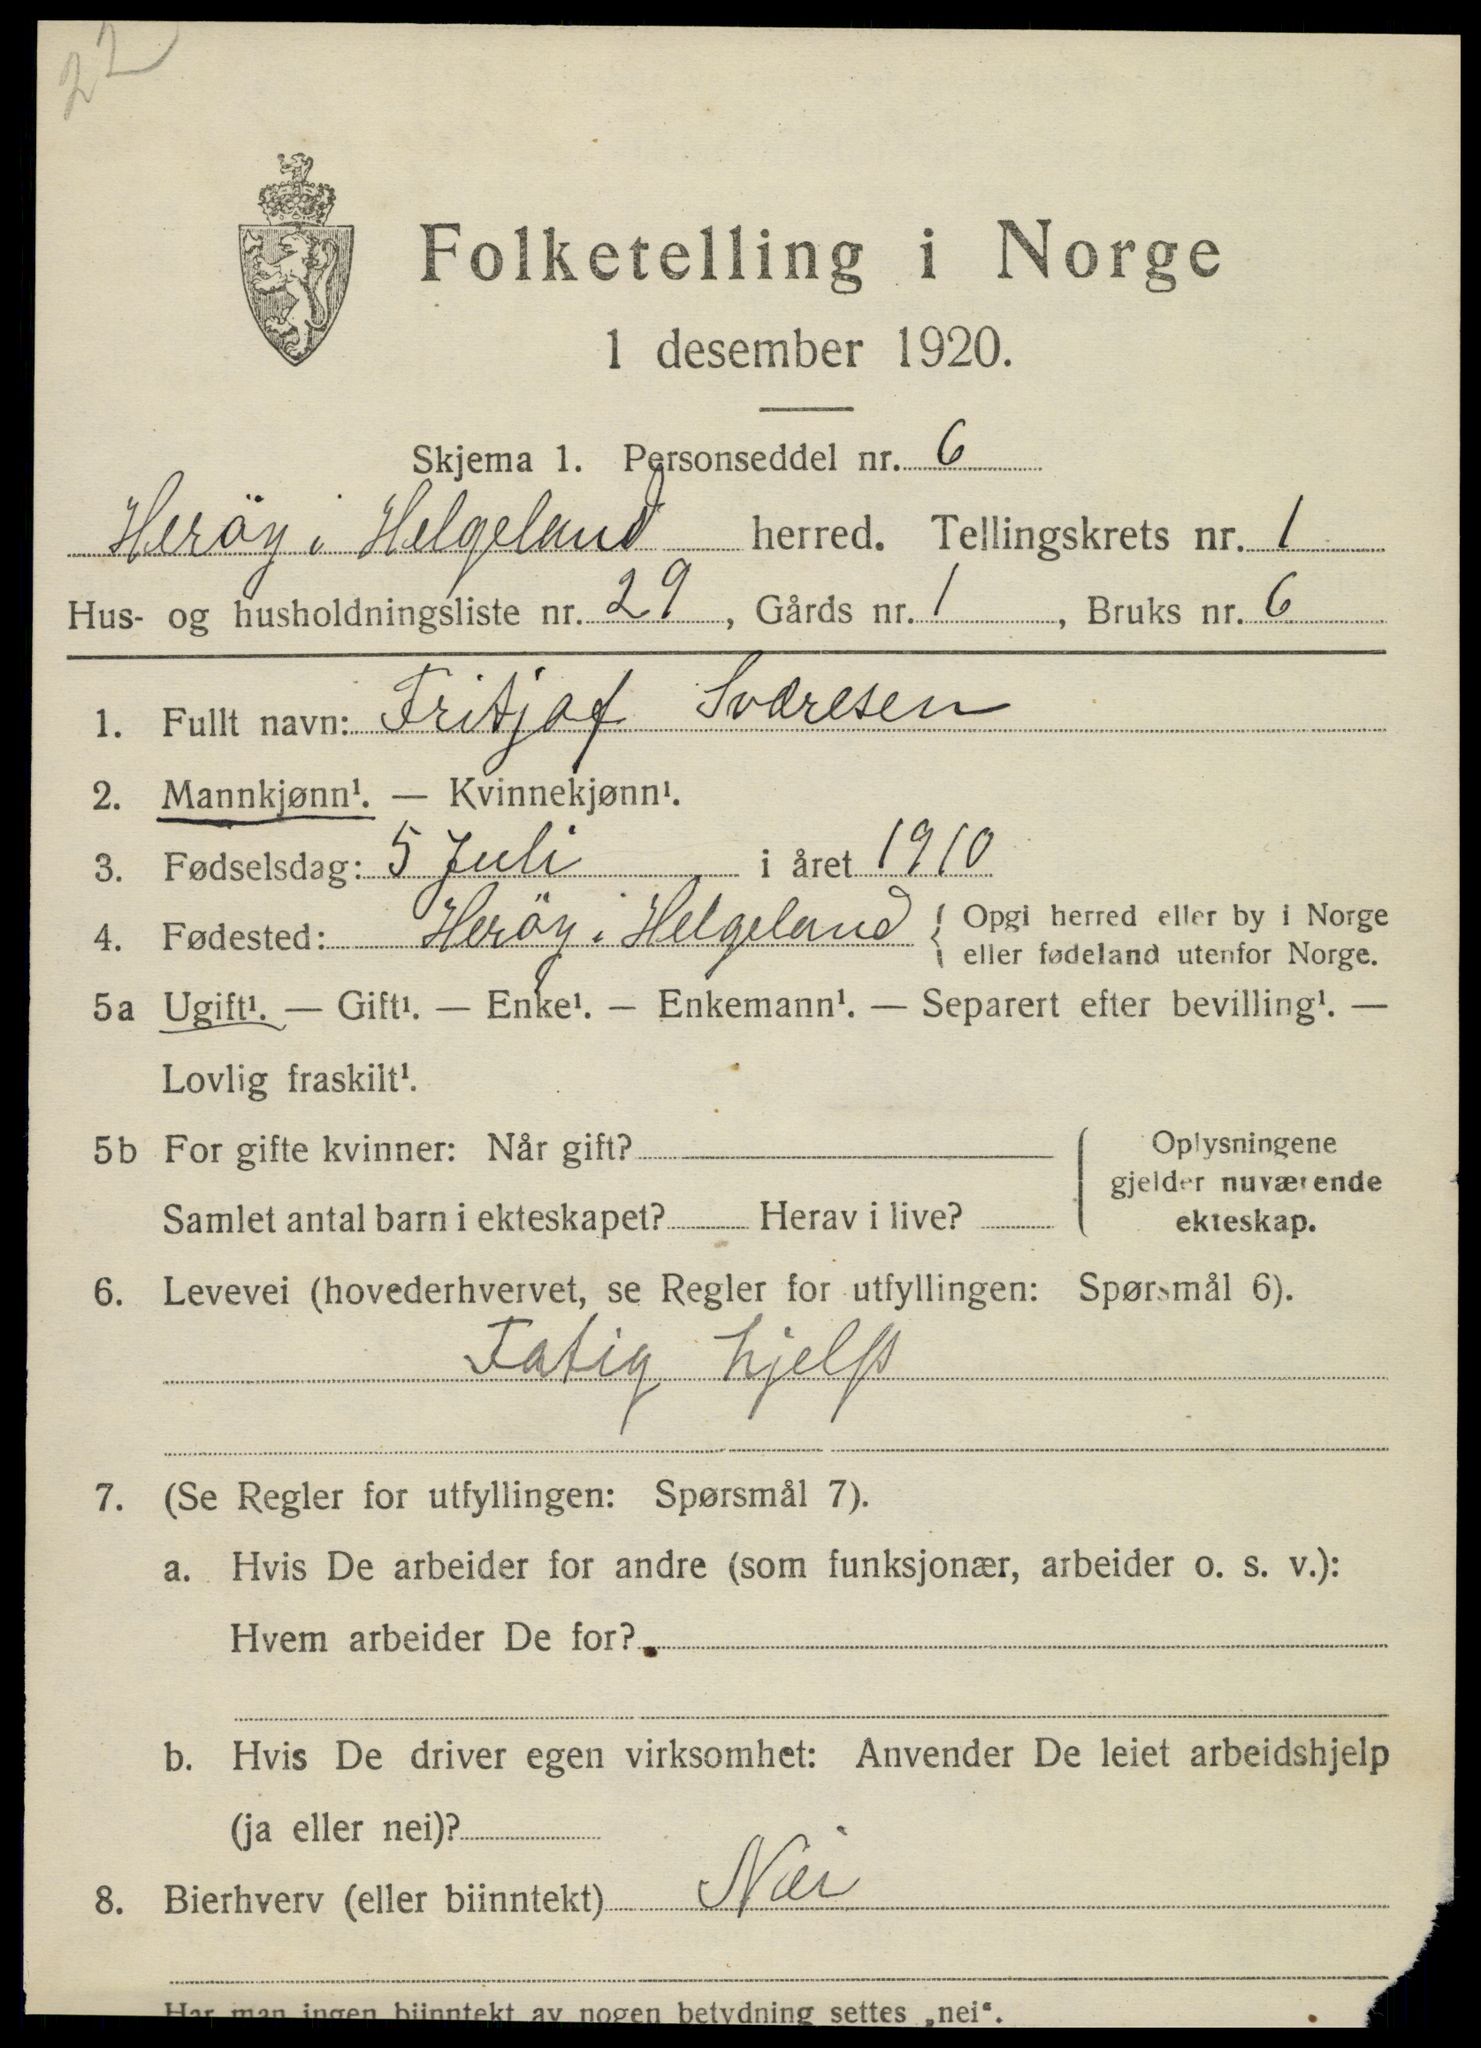 22
Folketelling i Norge
1 desember 1920.
Skjema 1. Personseddel nr. 6
Herøy i Helgeland herred. Tellingskrets nr. 1
Hus- og husholdningsliste nr. 29, Gårds nr. 1, Bruks nr. 6
1. Fullt navn: Fritjof Sværesen
2. Mannkjønn¹. — Kvinnekjønn¹.
3. Fødselsdag: 5 Juli i året 1910
4. Fødested: Heröy i Helgeland { Opgi herred eller by i Norge
eller fødeland utenfor Norge.
5a Ugift¹. — Gift¹. — Enke¹. — Enkemann¹. — Separert efter bevilling¹. —
Lovlig fraskilt¹.
5b For gifte kvinner: Når gift?
Samlet antal barn i ekteskapet? Herav i live?
Oplysningene
gjelder nuværende
ekteskap.
6. Levevei (hovederhvervet, se Regler for utfyllingen: Spørsmål 6).
Fatig hjelp
7. (Se Regler for utfyllingen: Spørsmål 7).
a. Hvis De arbeider for andre (som funksjonær, arbeider o. s. v.):
Hvem arbeider De for?
b. Hvis De driver egen virksomhet: Anvender De leiet arbeidshjelp
(ja eller nei)?
8. Bierhverv (eller biinntekt) Nei
Har man ingen biinntekt av nogen betydning settes „nei“.